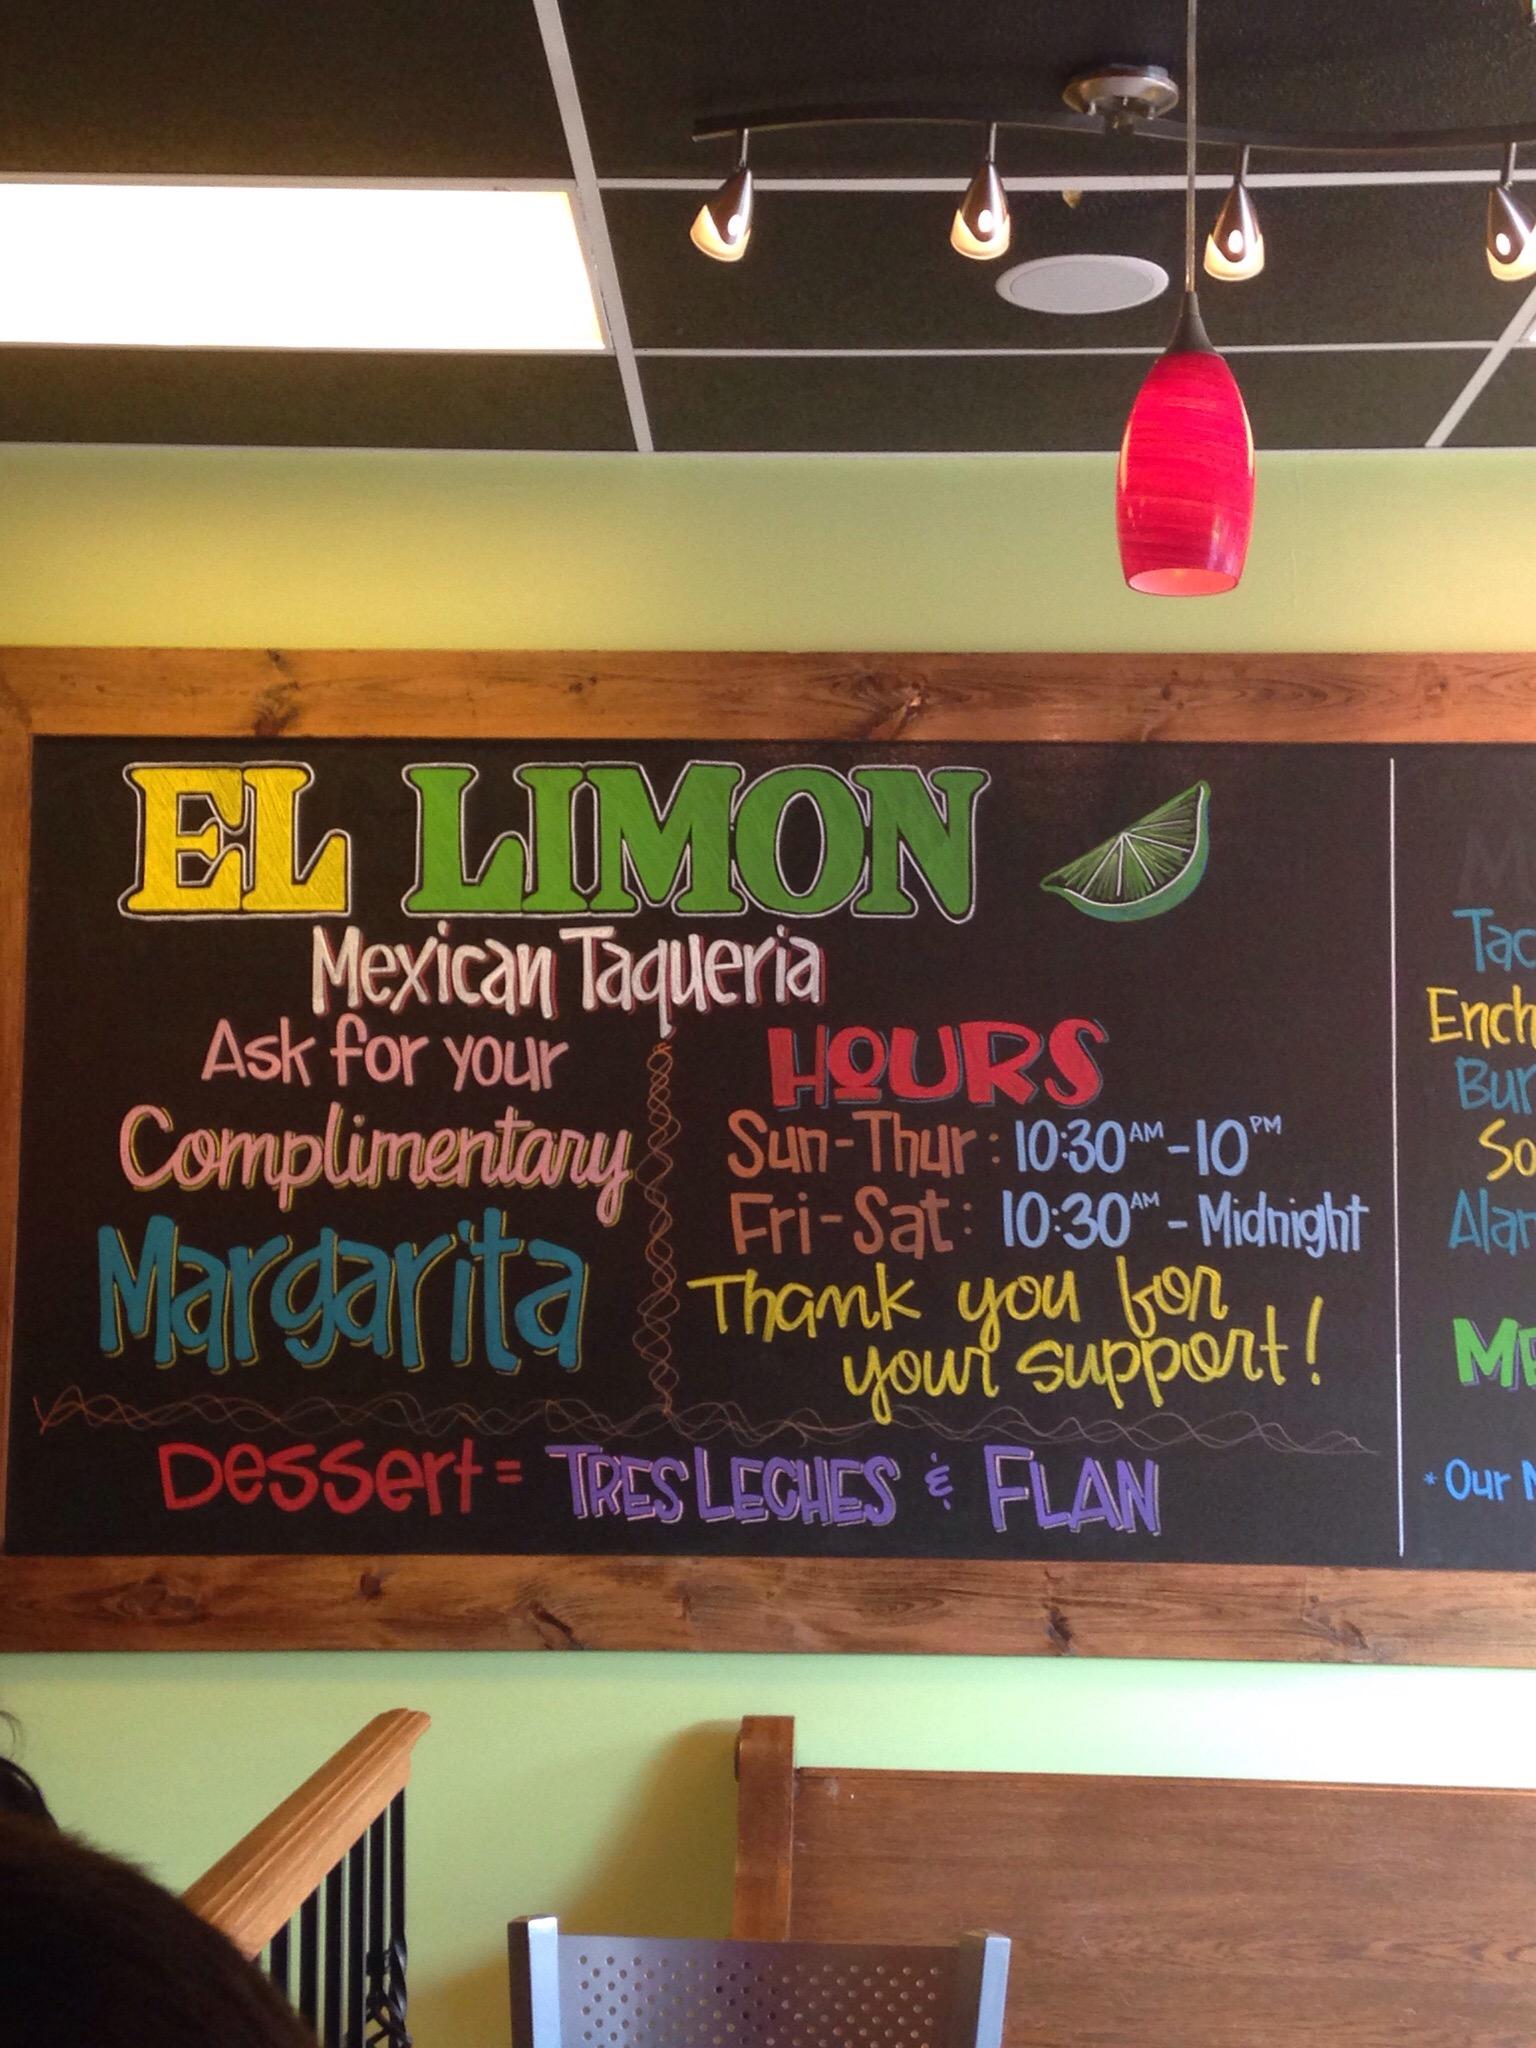 EL LIMON
Mexican Taqueria
Ask for your
Complimentary
Margarita
HOURS
Sun-Thur: 10:30AM-10PM
Fri-Sat: 10:30AM - Midnight
Thank you for
your support!
Dessert = TRES LECHES & FLAN
Tac
Ench
Bur
So
Alar
* Our